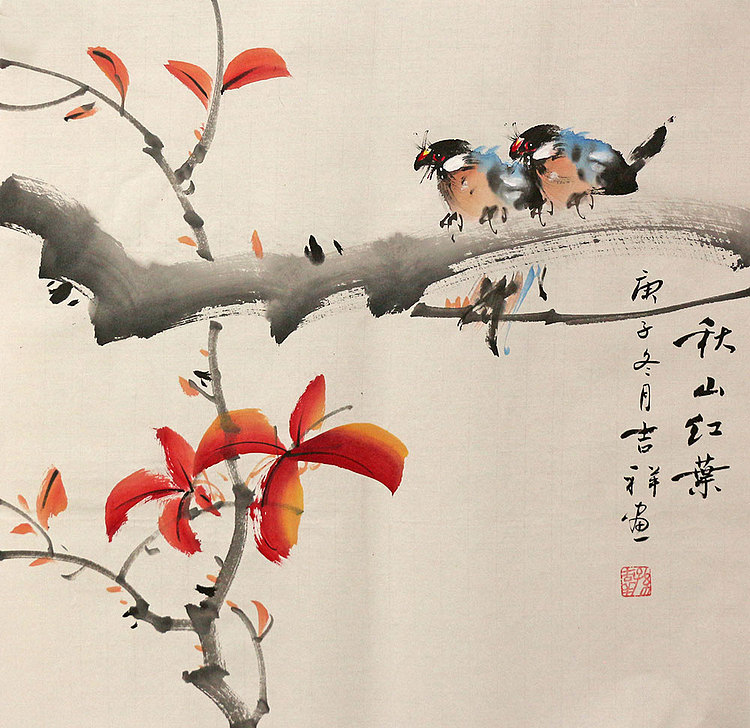 秋山红葉
庚子冬月吉祥画